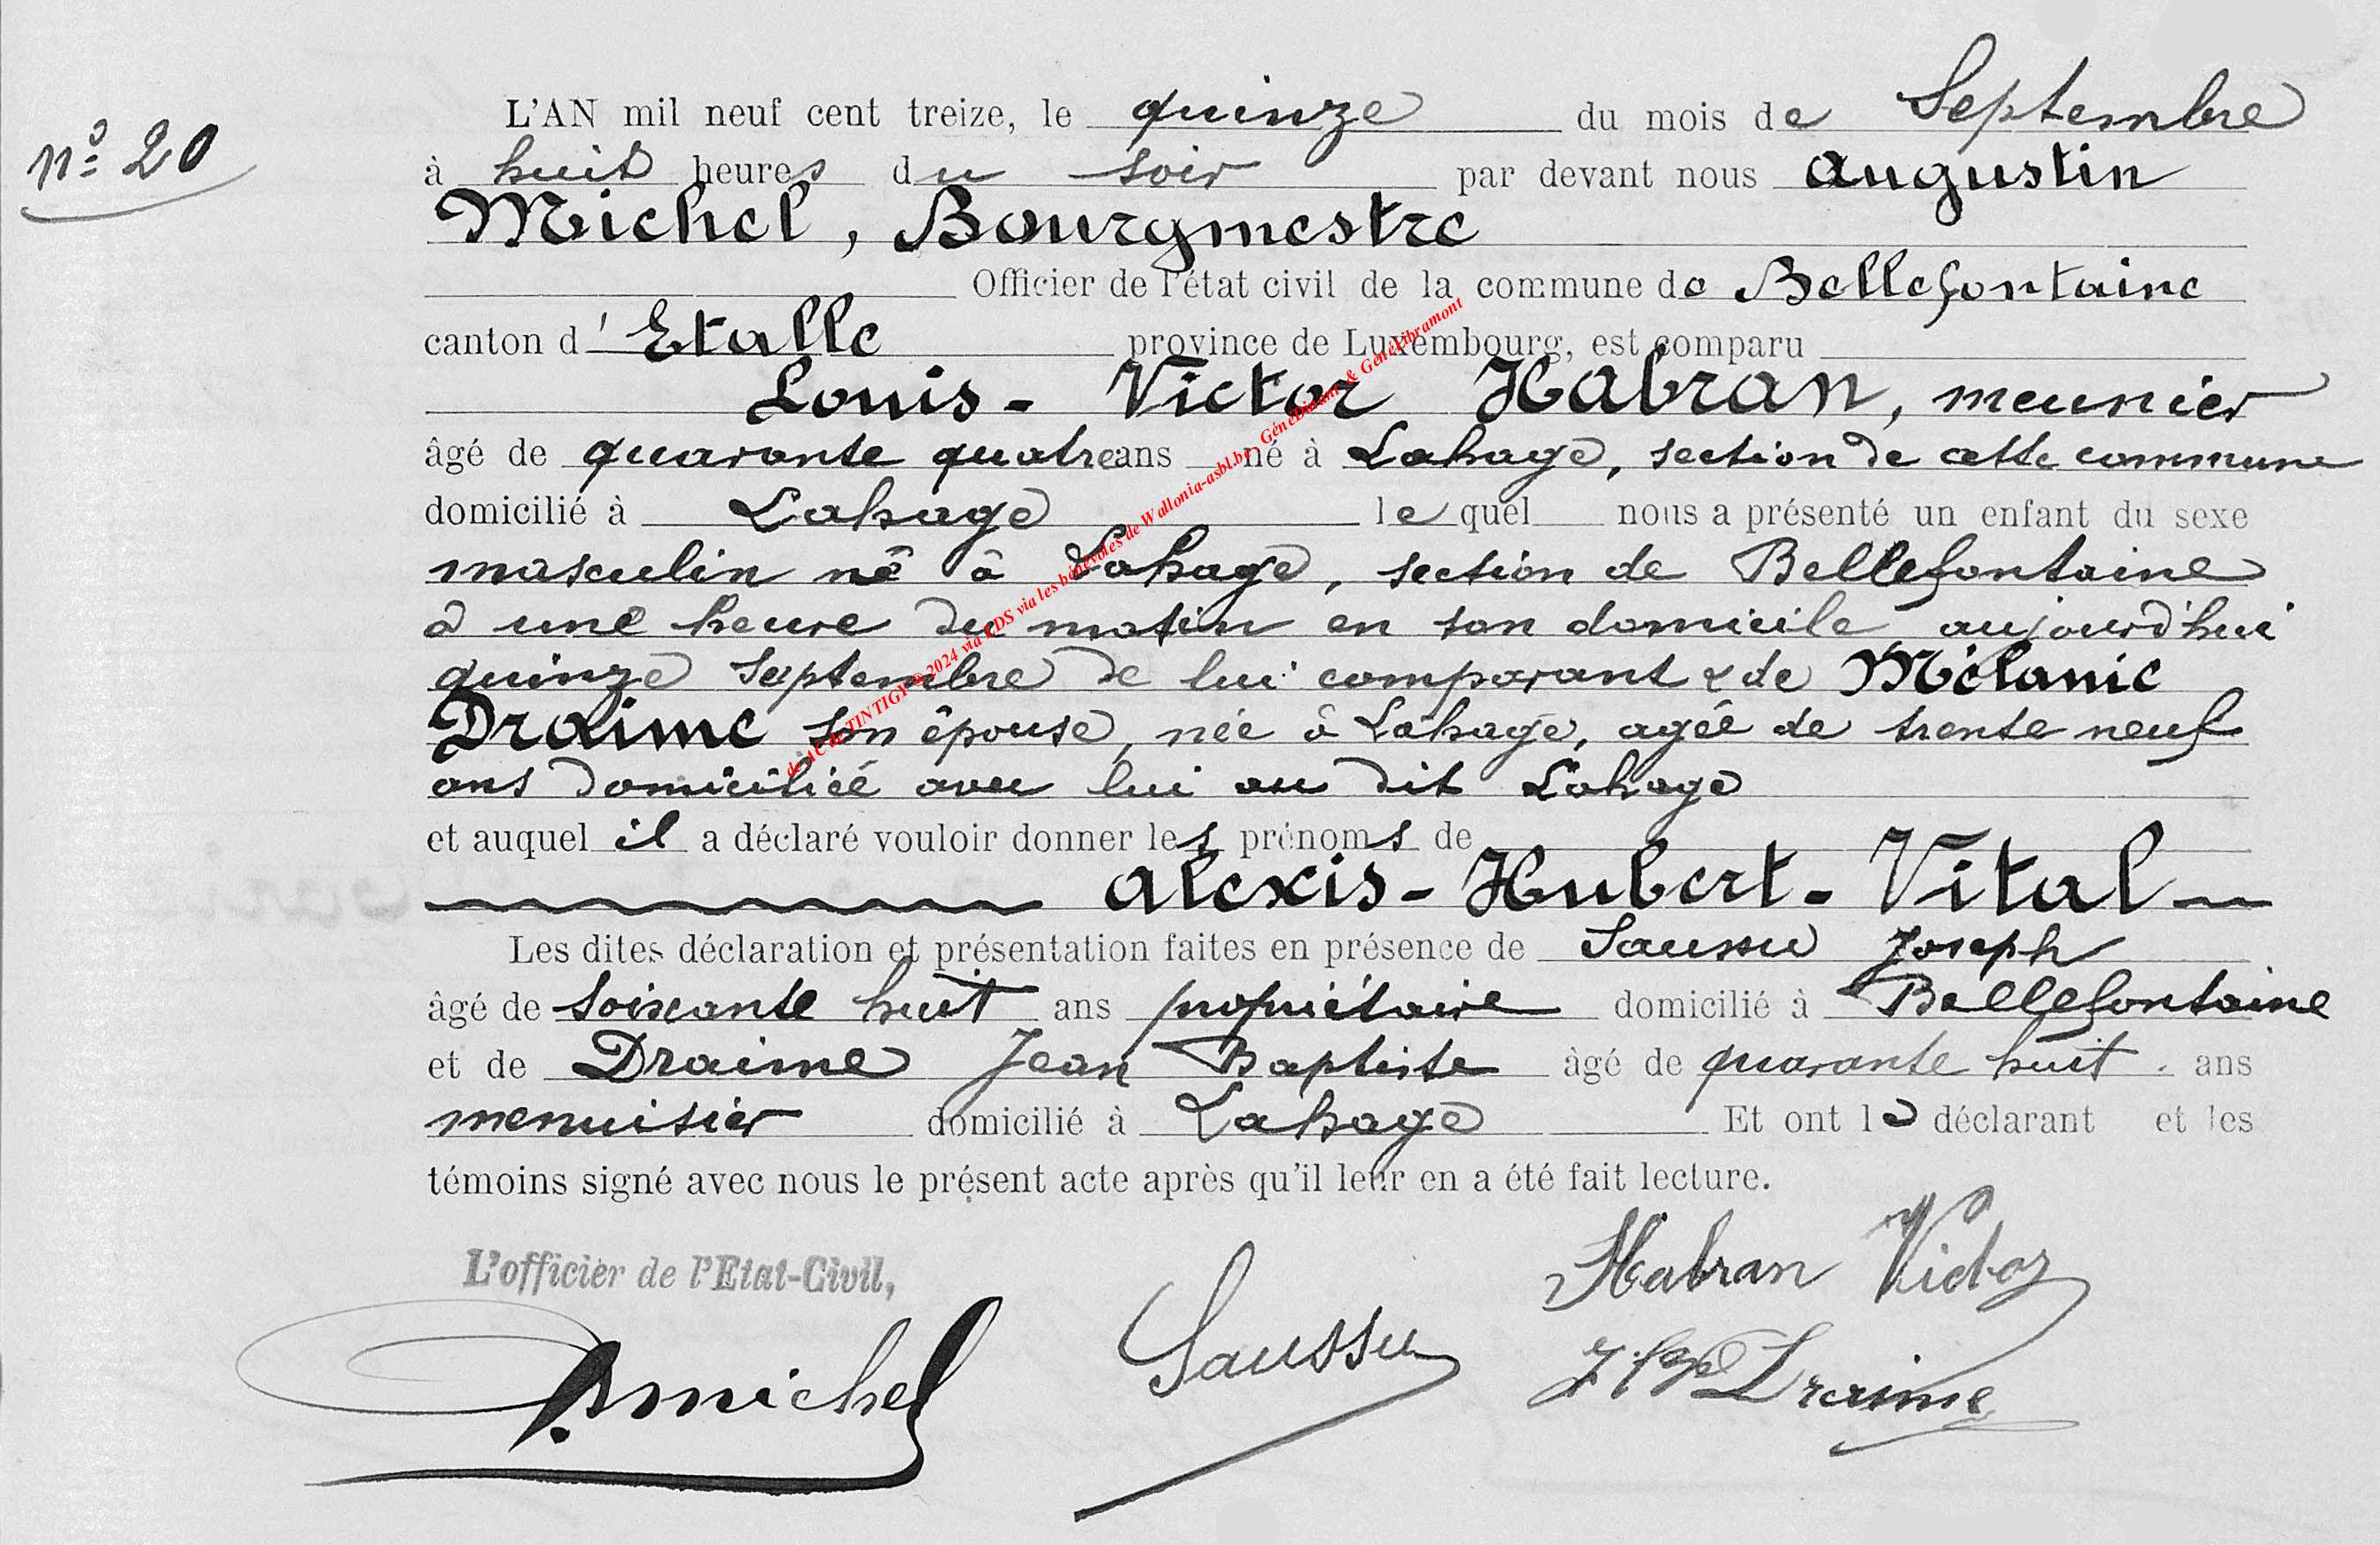 nº 20
L'AN mil neuf cent treize, le quinze du mois de Septembre
à huit heures du soir par devant nous Augustin
Michel, Bourgmestre
Officier de l'état civil de la commune de Bellefontaine
canton d'Etalle province de Luxembourg, est comparu
Louis-Victor Habran, meunier
âgé de quarante quatre ans né à Lahage, section de cette commune
domicilié à Lahage lequel nous a présenté un enfant du sexe
masculin né à Lahage, section de Bellefontaine
à une heure du matin en son domicile aujourd'hui
quinze Septembre de lui comparant & de Mélanie
Draime son épouse, née à Lahage, agée de trente neuf
ans domiciliée avec lui au dit Lahage
et auquel il a déclaré vouloir donner les prénoms de
Alexis-Hubert-Vital
Les dites déclaration et présentation faites en présence de Saussu Joseph
âgé de soixante huit ans propriétaire domicilié à Bellefontaine
et de Draime Jean Baptiste âgé de quarante huit ans
menuisier domicilié à Lahage Et ont le déclarant et les
témoins signé avec nous le présent acte après qu'il leur en a été fait lecture.
L'officier de l'Etat-Civil,
Habran Victor
AMichel
Saussu
Draime
TINTIGY © 2024 via LDS via les bénévoles de Wallonia-asbl.be, GénéDinant & GénéLibramont